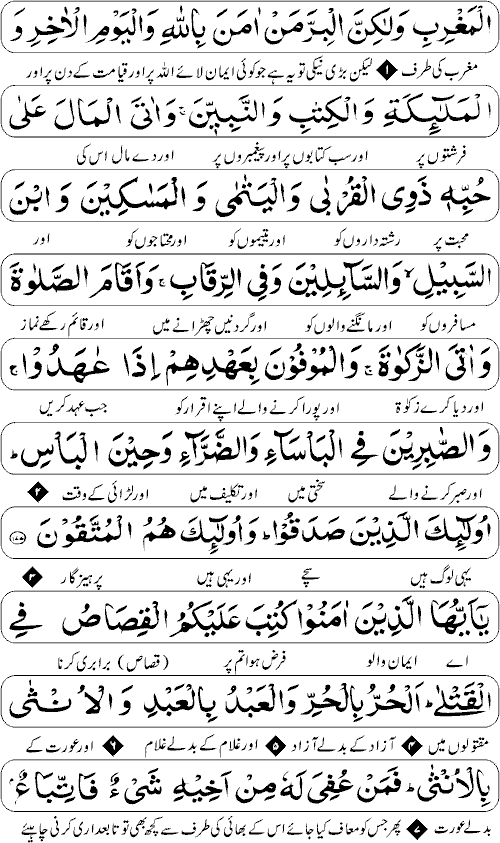 الْمَغْرِبِ وَلٰكِنَّ الْبِرَّ مَنْ اٰمَنَ بِاللّٰهِ وَالْيَوْمِ الْاٰخِرِ وَ
مغرب کی طرف ۱ لیکن بڑی نیکی تو یہ ہے جو کوئی ایمان لائے اللہ پر اور قیامت کے دن پر اور
الْمَلٰٓئِكَةِ وَالْكِتٰبِ وَالنَّبِيّٖنَ ۚ وَاٰتَى الْمَالَ عَلٰى
فرشتوں پر اور سب کتابوں پر اور پیغمبروں پر اور دے مال اس کی
حُبِّهٖ ذَوِى الْقُرْبٰى وَالْيَتٰمٰى وَالْمَسٰكِيْنَ وَابْنَ
محبت پر رشتہ داروں کو اور یتیموں کو اور محتاجوں کو اور
السَّبِيْلِ ۙ وَالسَّآئِلِيْنَ وَفِى الرِّقَابِ ۚ وَاَقَامَ الصَّلٰوةَ
مسافروں کو اور مانگنے والوں کو اور گردنیں چھڑانے میں اور قائم رکھے نماز
وَاٰتَى الزَّكٰوةَ ۚ وَالْمُوْفُوْنَ بِعَهْدِهِمْ اِذَا عٰهَدُوْا ۚ
اور دیا کرے زکوۃ اور پورا کرنے والے اپنے اقرار کو جب عہد کریں
وَالصّٰبِرِيْنَ فِى الْبَاْسَآءِ وَالضَّرَّآءِ وَحِيْنَ الْبَاْسِ ؕ
اور صبر کرنے والے سختی میں اور تکلیف میں اور لڑائی کے وقت ۲
اُولٰٓئِكَ الَّذِيْنَ صَدَقُوْا ؕ وَاُولٰٓئِكَ هُمُ الْمُتَّقُوْنَ ۱۷۷
یہی لوگ ہیں سچے اور یہی ہیں پرہیزگار ۳
يٰۤاَيُّهَا الَّذِيْنَ اٰمَنُوْا كُتِبَ عَلَيْكُمُ الْقِصَاصُ فِى
اے ایمان والو فرض ہوا تم پر (قصاص) برابری کرنا
الْقَتْلٰى ؕ اَلْحُرُّ بِالْحُرِّ وَالْعَبْدُ بِالْعَبْدِ وَالْاُنْثٰى
مقتولوں میں ۴ آزاد کے بدلے آزاد ۵ اور غلام کے بدلے غلام ۶ اور عورت کے
بِالْاُنْثٰى ؕ فَمَنْ عُفِىَ لَهٗ مِنْ اَخِيْهِ شَىْءٌ فَاتِّبَاعٌۢ
بدلے عورت ۷ پھر جس کو معاف کیا جائے اس کے بھائی کی طرف سے کچھ بھی تو تابعداری کرنی چاہیئے